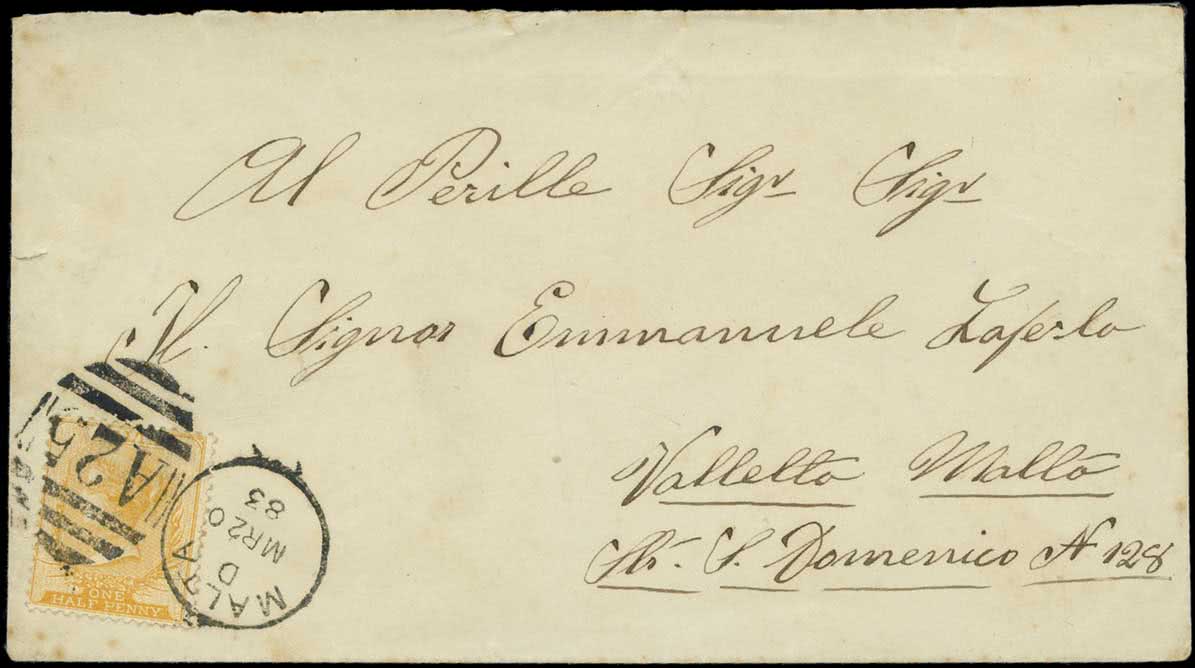 Al Perille Sigr Sigr
Il Signor Emmanuele Zaferlo
Valletta Malta
Str. S. Domenico N 128
A25
MALTA
D
MR20
83
ONE
HALF PENNY